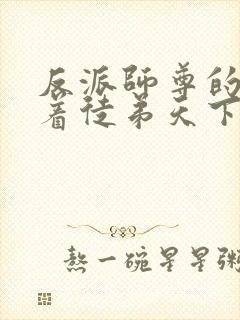 反派师尊的
着徒弟天下
熬一碗星星粥